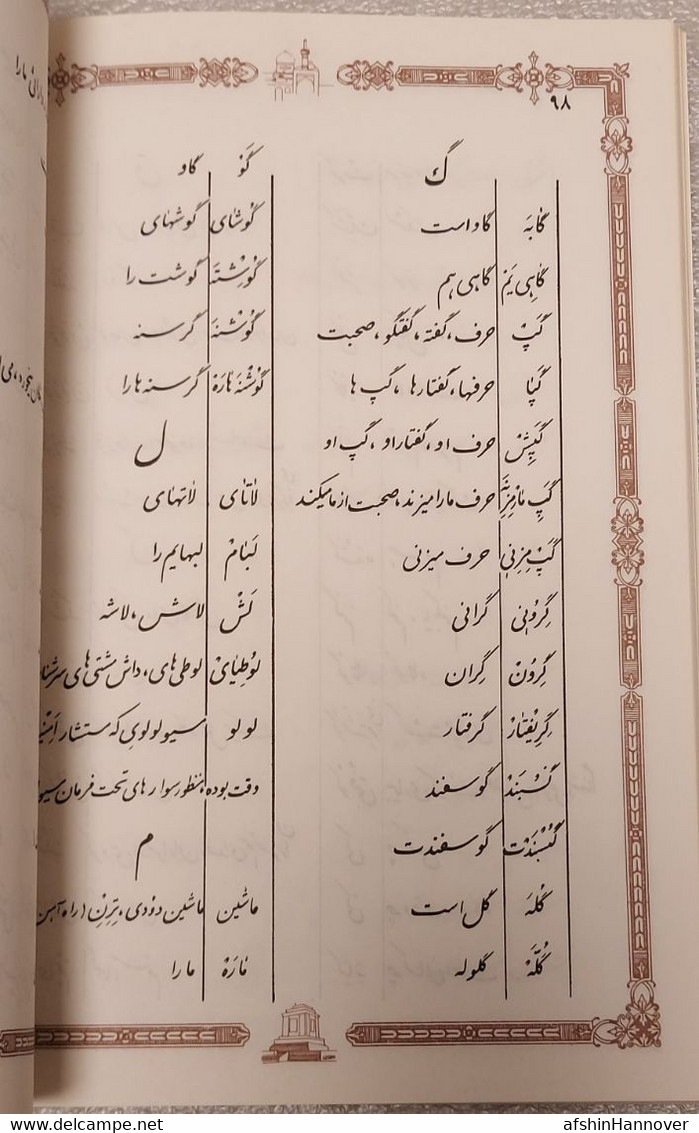 ۹۸
گ
گابَه گاو است
گاهِی یَمْ گاهی هم
گَپْ حرف، گفته، گفتگو، صحبت
گَپْا حرفها، گفتارها، گپ ها
گَپِشْ حرف او، گفتار او، گپ او
گَپِ مارْ مِزِنَه حرف ما را میزند، صحبت از ما میکند
گَپْ مِزِنیْ حرف میزنی
گِرُوْنی گرانی
گِرُوْنْ گران
گِرِیْفتارْ گرفتار
گُسْبَندْ گوسفند
گُسْبَندْتْ گوسفندت
گُلَه گل است
گُلَّه گلوله
گَوْ گاو
گوْشای گوشهای
گوْشْتَ گوشت را
گوْشْنَه گرسنه
گوْشْنَه هارَهْ گرسنه ها را
ل
لاتای لاتهای
لَبامْ لبهایم را
لَشْ لاش، لاشه
لوْطِیایْ لوطی های، داش مشتی های
لو لو مسیو لولوی که مستشار
وقت بوده، منظور سوارهای تحت فرمان
م
ماشین ماشین دودی، تِرِنِ (راه آهن
مارَهْ ما را
afshinHannover
www.delcampe.net